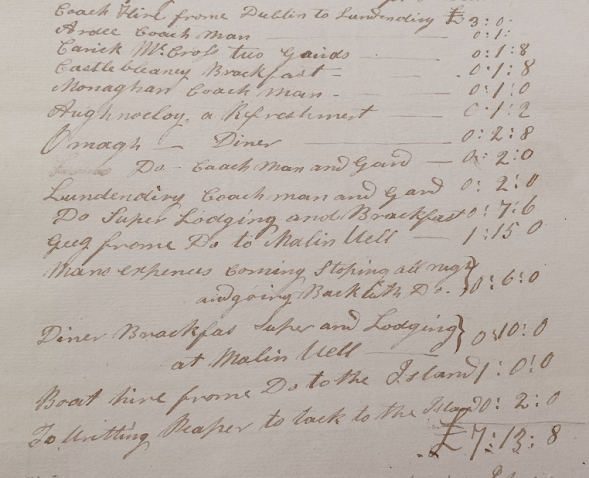 Coach Hire frome Dublin to Lundendirry £3:0:
Ardee Coach man 0:1:
Carick McCross two Gairds 0:1:8
Castlebleaney Brackfast 0:1:8
Monaghan Coach man 0:1:0
Aughnocloy, a Refreshment 0:1:2
Omagh — Diner 0:2:8
Do - Coach Man and Gard — 0:2:0
Lundendirry Coach man and Gard 0:2:0
Do Super Lodging and Brackfast 0:7:6
Geeg frome Do to Malin Well — 1:15 0
Mans expences Coming Stoping all night
and going Back with Do. 0:6:0
Diner Brackfas Super and Lodging
at Malin Well 0:10:0
Boat hire frome Do to the Island 1:0:0
To Writting Peaper to tack to the Island 0:2:0
£7:13:8